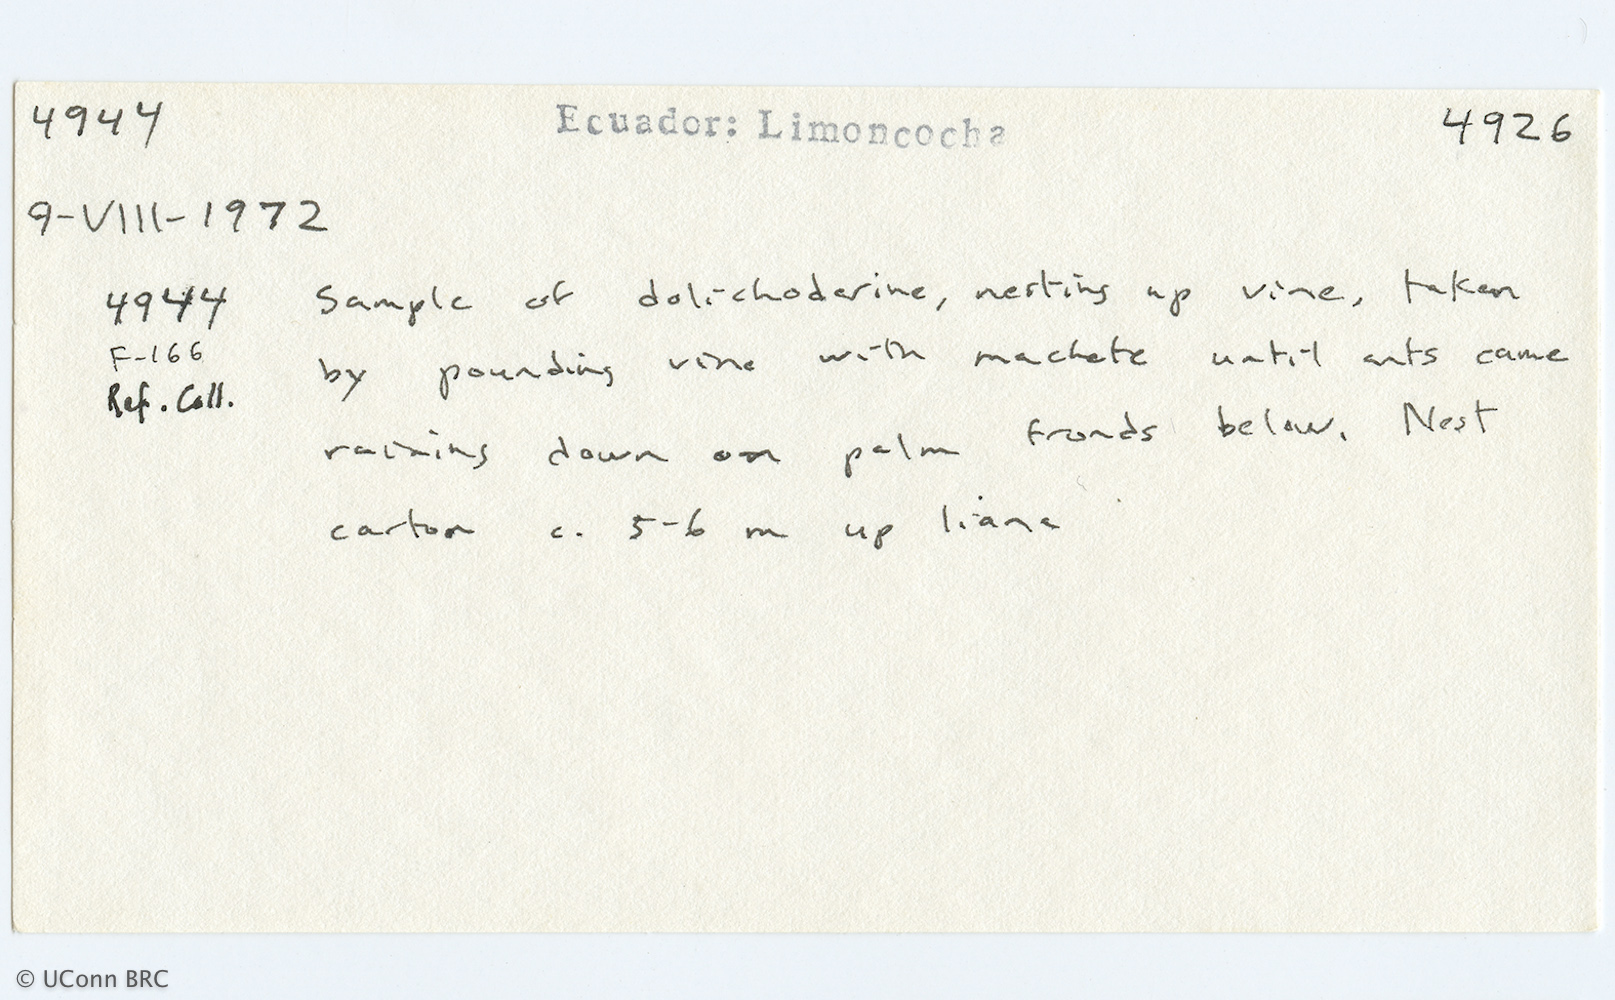 4944 Ecuador: Limoncocha 4926
9-VIII-1972
4944 Sample of dolichoderine, nesting up vine, taken
F-166 by pounding vine with machete until ants came
Ref. Coll.
raining down on palm fronds below. Nest
carton c. 5-6 m up liana
© UConn BRC